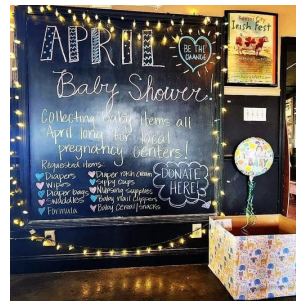 Kansas City
Irish Fest
APRIL
BE THE
CHANGE
Baby Shower!
Collecting baby items all
April long for local
pregnancy centers!
Requested items:
Diapers
Wipes
Diaper bags
Swaddles
Formula
Diaper rash cream
Sippy cups
Nursing supplies
Baby nail clippers
Baby cereal/snacks
DONATE
HERE!